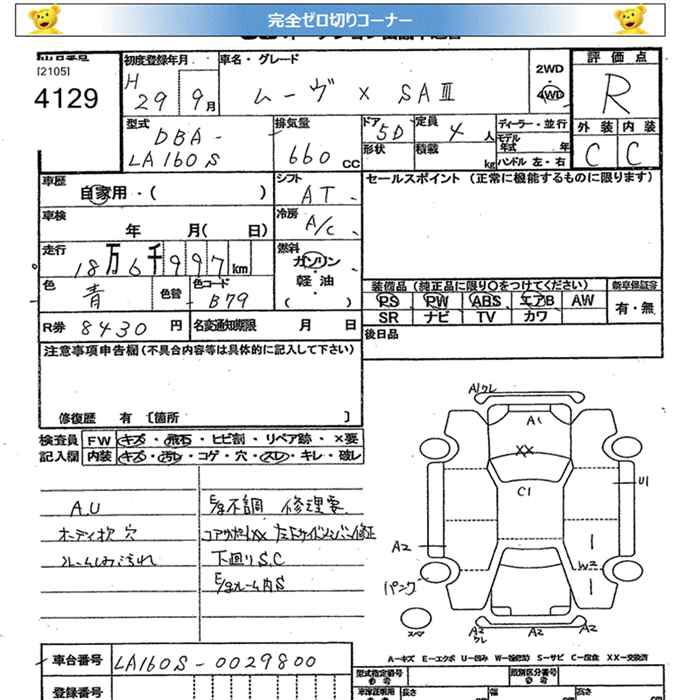 完全ゼロ切りコーナー
[2105]
4129
初度登録年月
H 29 9月
車名・グレード
ムーヴ X SAⅢ
2WD
4WD
評価点
R
外装 内装
C C
型式
DBA-
LA160S
排気量
660 CC
ドア 5D
形状
定員 4人
積載 kg
ディーラー・並行
モデル年式 年
ハンドル 左・右
車歴
自家用・( )
シフト
AT
セールスポイント (正常に機能するものに限ります)
車検
年 月( 日)
冷房
A/C
走行
18万6千997km
燃料
ガソリン
軽油
( )
色
青
色替
色コード
B79
装備品 (純正品に限り○をつけてください)
新車保証書
PS PW ABS エアB AW
有・無
SR ナビ TV カワ
R券 8430円
名変通知期限 月 日
後日品
注意事項申告欄 (不具合内容等は具体的に記入して下さい)
修復歴 有 [箇所 ]
検査員 FW キズ・飛石・ヒビ割・リペア跡・×要
記入欄 内装 キズ・汚レ・コゲ・穴・スレ・キレ・破レ
A.U
E/g不調 修理要
下回りS.C
E/gルーム内S
A1
XX
C1
U1
A2
W2
パンク
A2
A2
A2
車台番号 LA160S-0029800
A-キズ E-エクボ U-凹み S-サビ C-腐食 XX-交換済
登録番号
型式指定番号
類別区分番号
参考
参考
長さ
幅
高さ